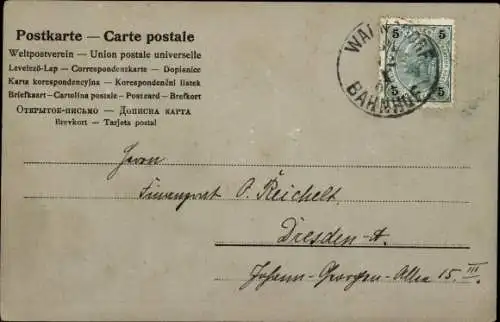 Postkarte — Carte postale
Weltpostverein — Union postale universelle
Levelező-Lap — Correspondenzkarte — Dopisnice
Karta korespondencyjna — Korespondenční lístek
Briefkaart — Cartolina postale — Postcard — Brefkort
Открытое-письмо — Дописна карта
Brevkort — Tarjeta postal
5 5
5 5
BAHNHOF
Herrn
Finanzrat O. Reichelt
Dresden-A.
Johann-Georgen-Allee 15. III.